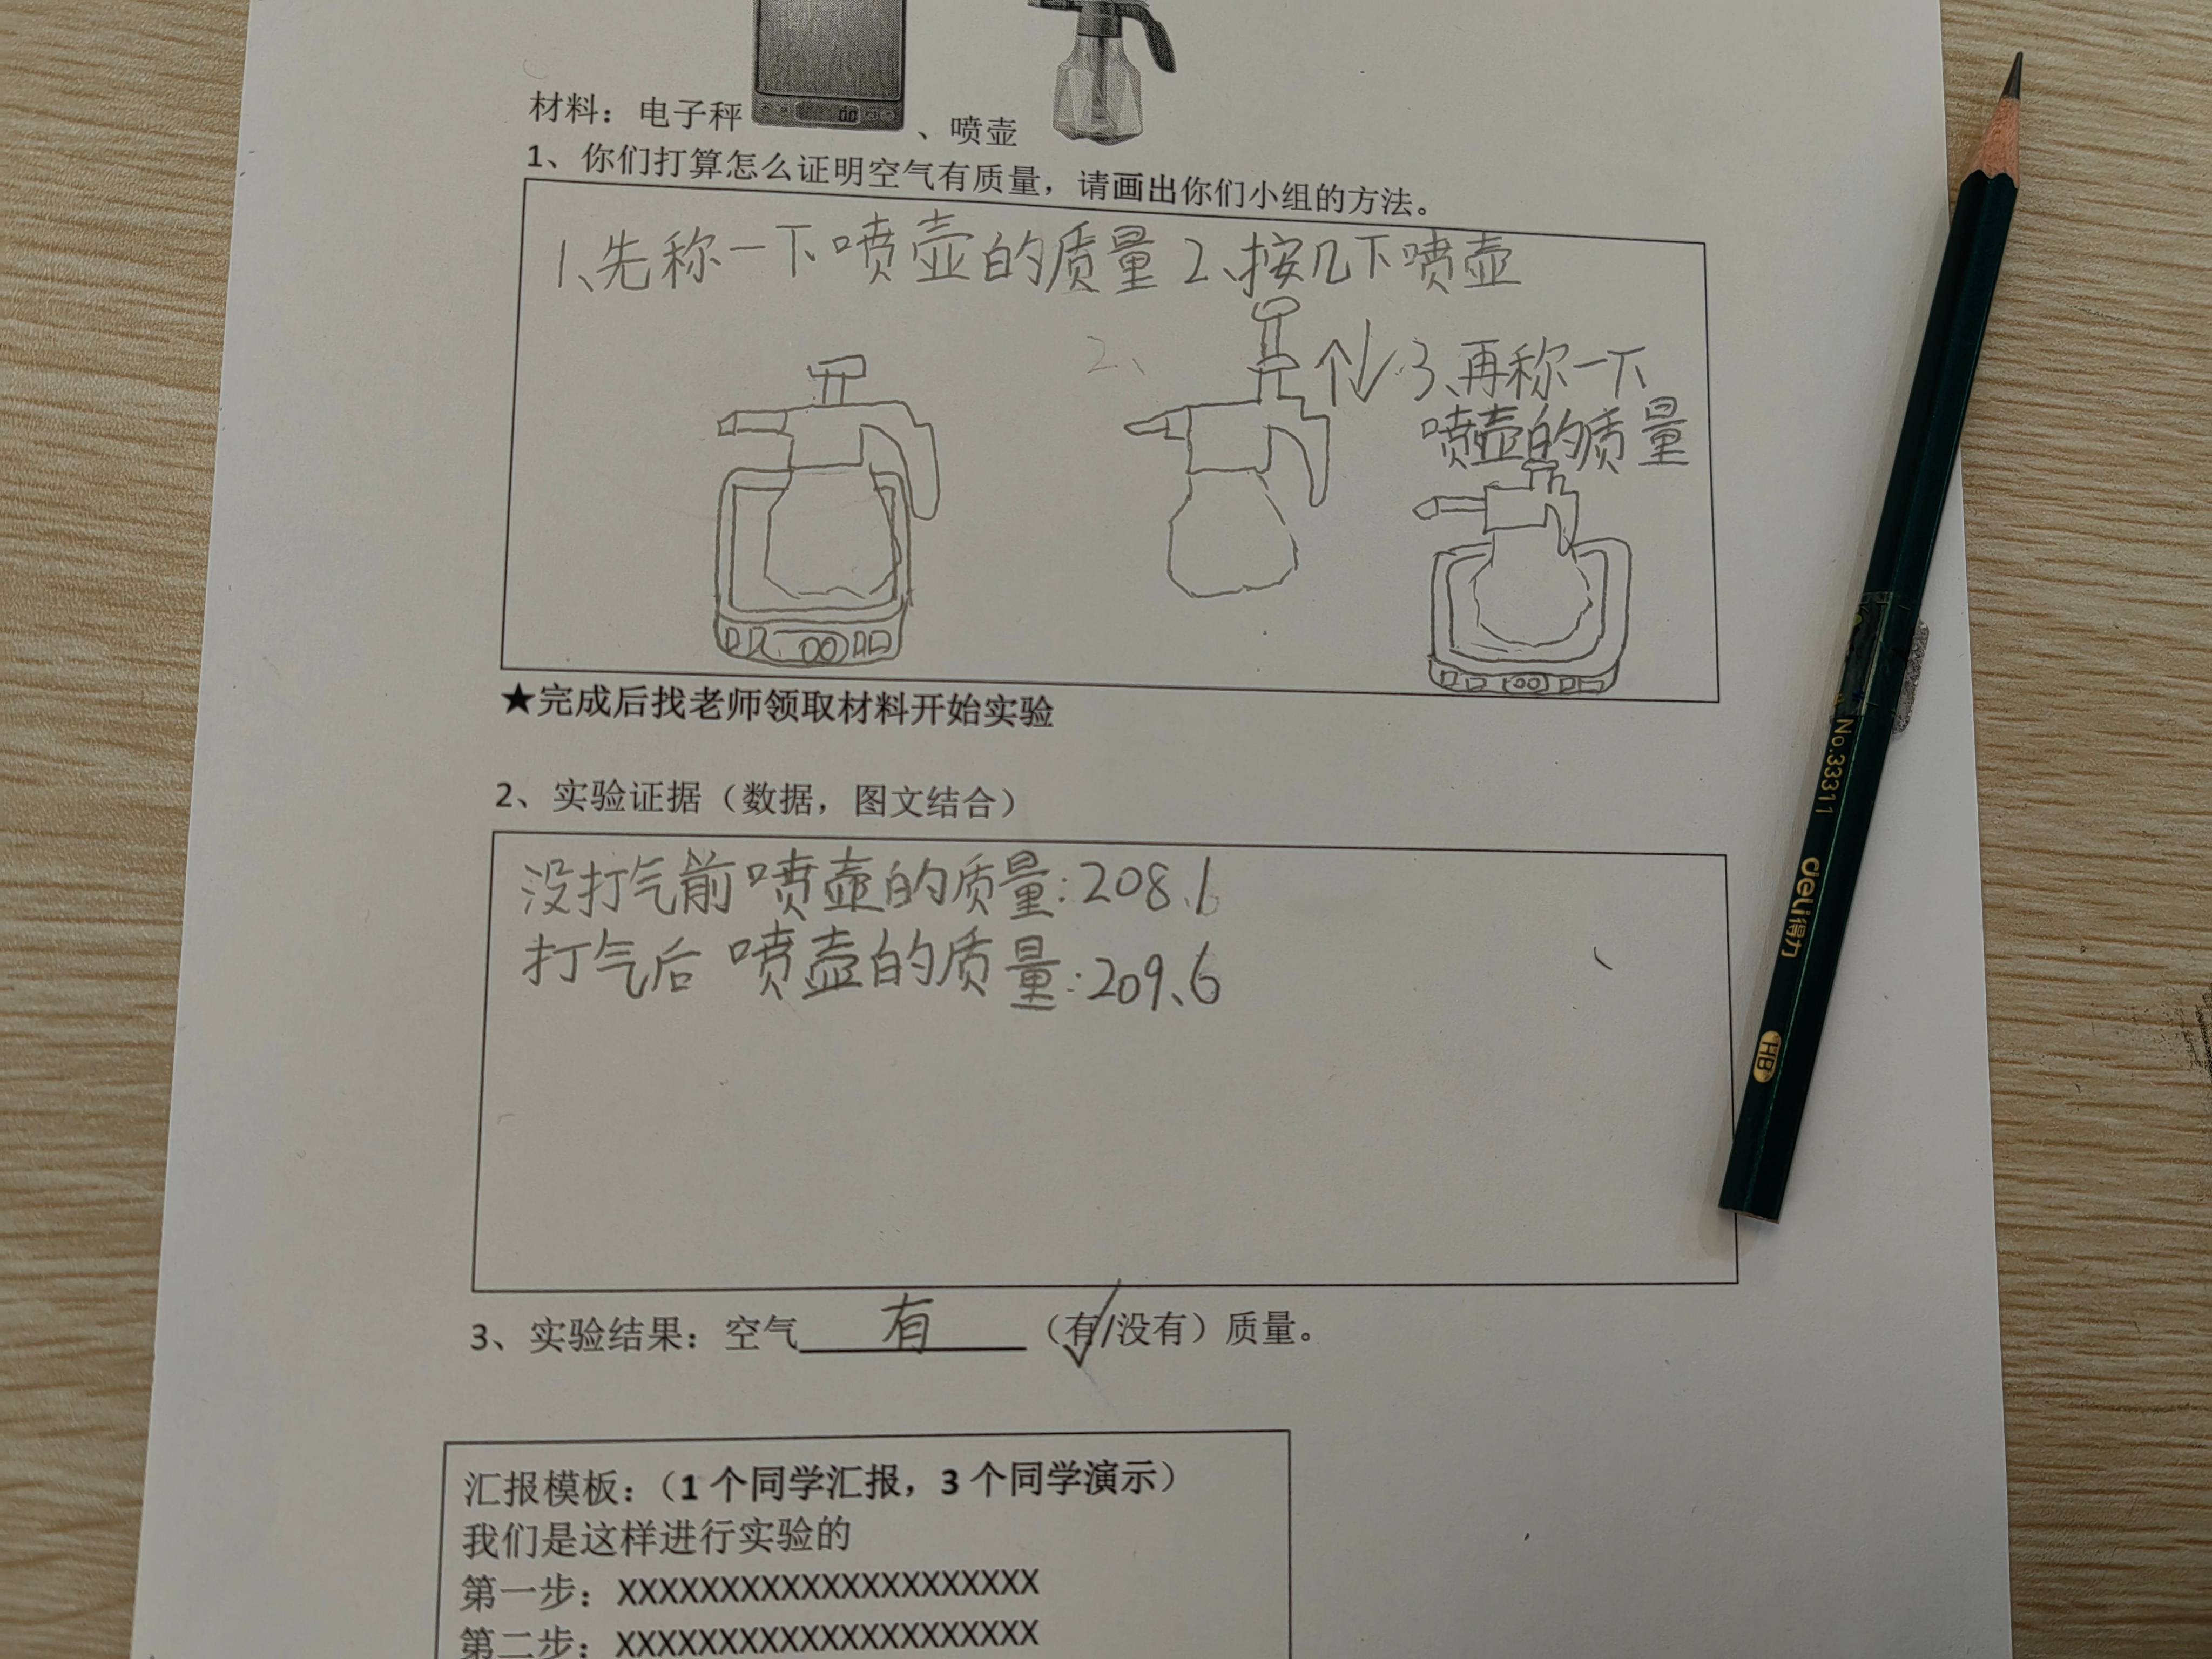 材料：电子秤、喷壶
1、你们打算怎么证明空气有质量，请画出你们小组的方法。
1、先称一下喷壶的质量 2、按几下喷壶
2、
3、再称一下
喷壶的质量
★完成后找老师领取材料开始实验
2、实验证据（数据，图文结合）
没打气前喷壶的质量:208.1
打气后喷壶的质量:209.6
3、实验结果：空气 有 （有/没有）质量。
汇报模板：（1 个同学汇报，3 个同学演示）
我们是这样进行实验的
第一步：XXXXXXXXXXXXXXXXXXXXX
第二步：XXXXXXXXXXXXXXXXXXXXX
No.33311
deli得力
HB